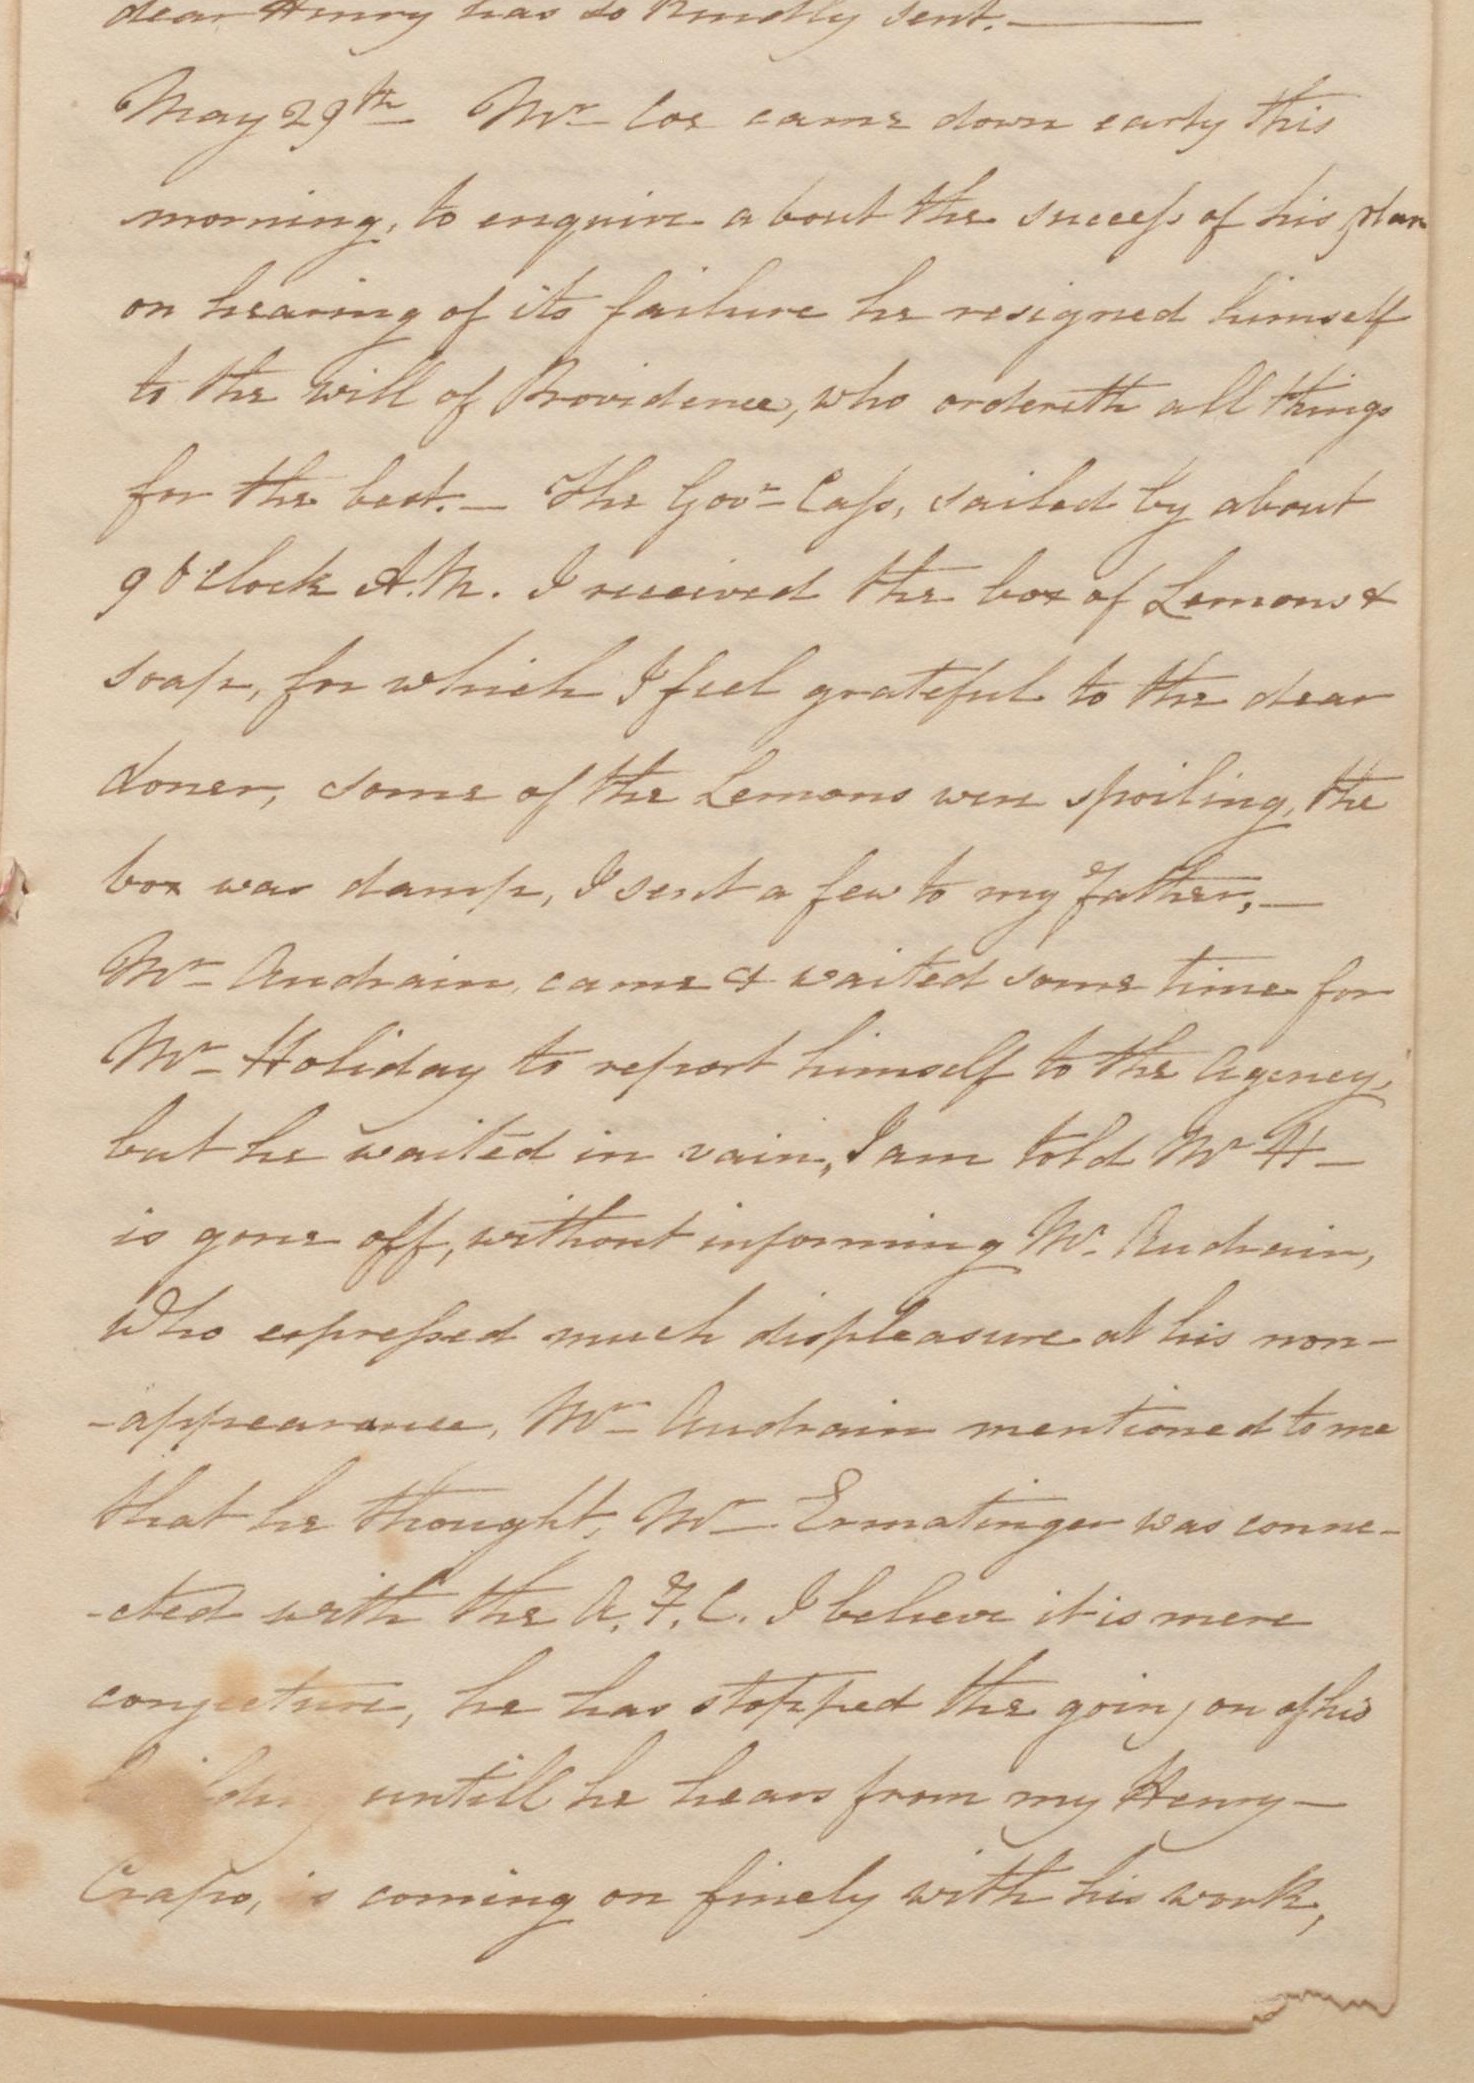 dear Henry has so kindly sent.—
May 29th Mr Coe came down early this
morning, to enquire about the success of his plan
on hearing of its failure he resigned himself
to the will of Providence, who ordereth all things
for the best.— The Govr Cass, sailed by about
9 O'clock A.M. I received the box of Lemons &
soap, for which I feel grateful to the dear
doner, some of the Lemons were spoiling, the
box was damp, I sent a few to my Father,—
Mr Audrain, came & waited some time for
Mr Holiday to report himself to the Agency,
but he waited in vain, I am told Mr H—
is gone off, without informing Mr. Audrain,
Who expressed much displeasure at his non-
-appearance, Mr Audrain mentioned to me
that he thought, Mr Ermatinger was conne-
-cted with the A. F. C. I believe it is mere
conjecture, he has stopped the going on of his
building untill he hears from my Henry—
Crapo, is coming on finely with his work,